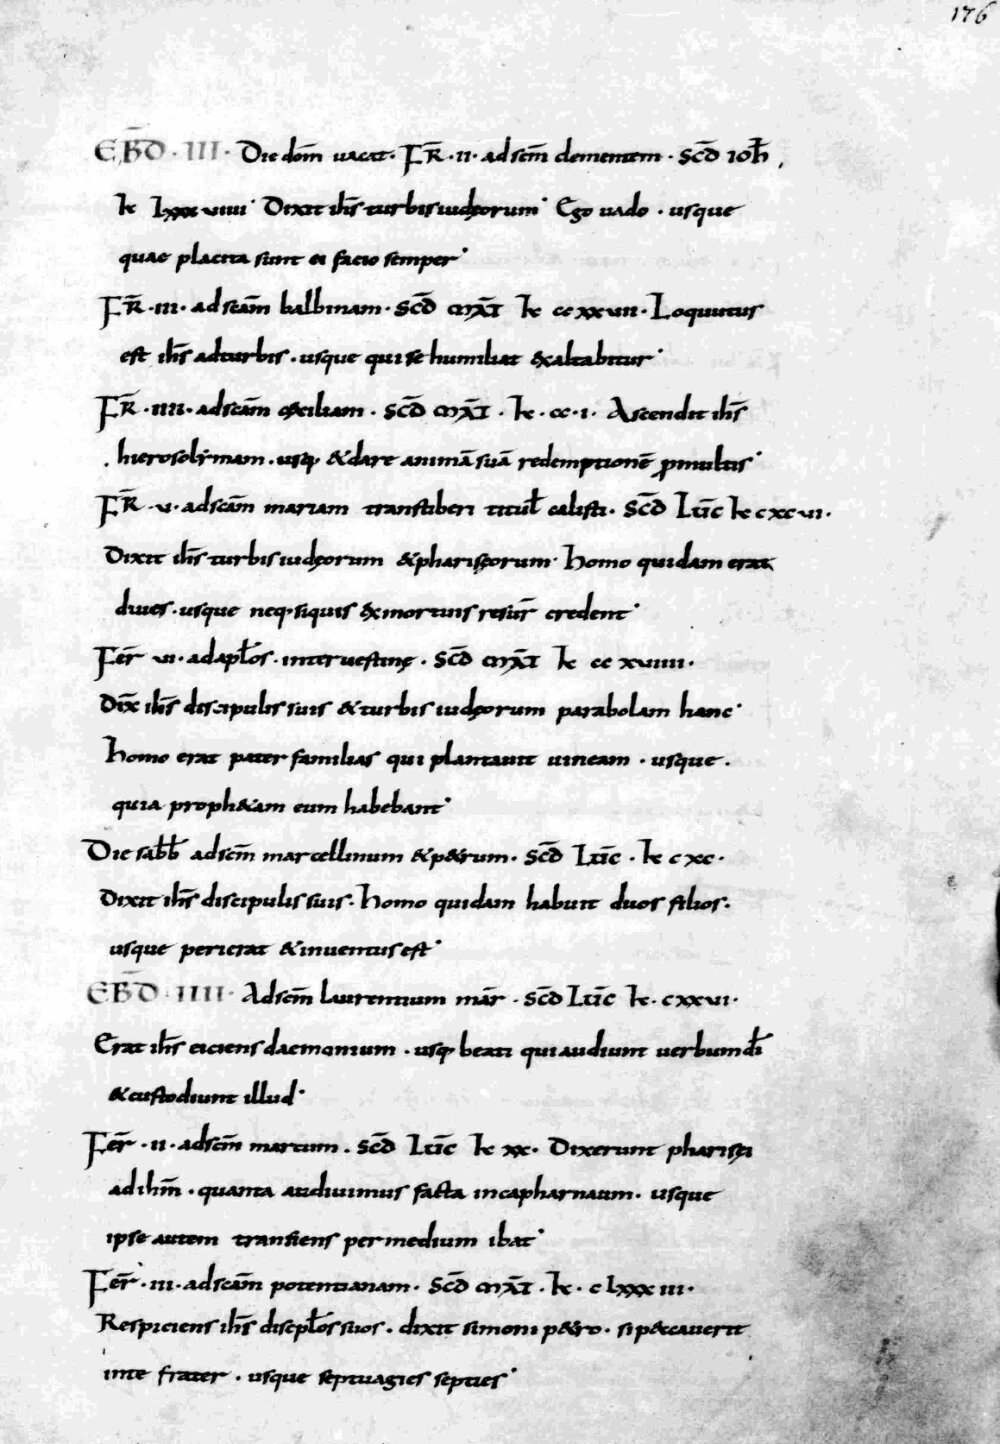 176
EB̄D · III · Die dom̄ uacat · FR̄ · II · ad sc̄m clementem · Sc̄d ioh̄
k̄ lxxxuiiii · Dixit ih̄s turbis iudęorum · Ego uado · usque
quae placita sunt ei facio semper ·
FR̄ · III · ad sc̄am balbinam · Sc̄d MAT̄ k̄ ccxxuii · Loquutus
est ih̄s ad turbis · usque qui se humiliat &xaltabitur ·
FR̄ · IIII · ad sc̄am cęciliam · Sc̄d MAT̄ · k̄ · cc · i · Ascendit ih̄s
hierosolymam · usq; & dare animā suā redemptionē ꝓ multis ·
FR̄ · u · ad sc̄am mariam transtiberi titul̄ calisti · Sc̄d Luc̄ k̄ cxcui ·
Dixit ih̄s turbis iudęorum & pharisęorum · homo quidam erat
diues · usque neq; siquis &x mortuis resur̄ credent ·
Fer̄ ui · ad apl̄os · inter uestinę · Sc̄d MAT̄ k̄ cc xuiiii ·
Dix̄ ih̄s discipulis suis & turbis iudęorum parabolam hanc ·
homo erat pater familias qui plantauit uineam · usque ·
quia proph&am eum habebant ·
Die sabb̄ ad sc̄m marcellinum & p&rum · Sc̄d Luc̄ · k̄ cxc ·
Dixit ih̄s discipulis suis · homo quidam habuit duos filios ·
usque perierat & inuentus est ·
EB̄D · IIII · Ad sc̄m laurentium mar̄ · Sc̄d Luc̄ k̄ · cxxui ·
Erat ih̄s eiciens daemonium · usq; beati qui audiunt uerbum dī
& custodiunt illud ·
Fer̄ · II · ad sc̄m marcum · Sc̄d Luc̄ k̄ xx · Dixerunt pharisęi
ad ih̄m · quanta audiuimus facta in capharnaum · usque
ipse autem transiens per medium ibat ·
Fer̄ · III · ad sc̄am potentianam · Sc̄d MAT̄ · k̄ · clxxxiii ·
Respiciens ih̄s discipl̄os suos · dixit simoni p&ro · si p&cauerit
in te frater · usque septuagies septies ·